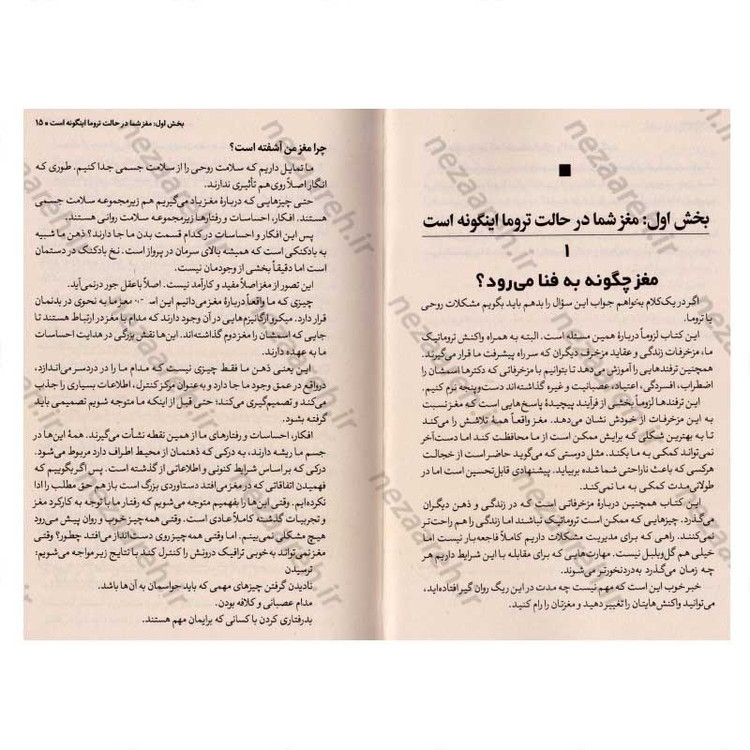 بخش اول: مغز شما در حالت تروما اینگونه است
۱
مغز چگونه به فنا می‌رود؟
اگر در یک کلام بخواهم جواب این سؤال را بدهم باید بگویم مشکلات روحی
یا تروما.
این کتاب لزوماً دربارهٔ همین مسئله است. البته به همراه واکنش تروماتیک
ما، مزخرفات زندگی و عقاید مزخرف دیگران که سر راه پیشرفت ما قرار می‌گیرند.
همچنین ترفندهایی را آموزش می‌دهد تا بتوانیم با مزخرفاتی که دکترها اسمشان را
اضطراب، افسردگی، اعتیاد، عصبانیت و غیره گذاشته‌اند دست‌وپنجه نرم کنیم.
این ترفندها لزوماً بخشی از فرآیند پیچیدهٔ پاسخ‌هایی است که مغز نسبت
به این مزخرفات از خودش نشان می‌دهد. مغز واقعاً همهٔ تلاشش را می‌کند
تا به بهترین شکلی که برایش ممکن است از ما محافظت کند اما دست‌آخر
نمی‌تواند کمکی به ما بکند. مثل دوستی که می‌گوید حاضر است از خجالت
هرکسی که باعث ناراحتی شما شده بربیاید. پیشنهادی قابل‌تحسین است اما در
طولانی‌مدت کمکی به ما نمی‌کند.
این کتاب همچنین دربارهٔ مزخرفاتی است که در زندگی و ذهن دیگران
می‌گذرد. چیزهایی که ممکن است تروماتیک نباشند اما زندگی را هم راحت‌تر
نمی‌کنند. راهی که برای مدیریت مشکلات داریم کاملاً فاجعه‌بار نیست اما
خیلی هم گل‌وبلبل نیست. مهارت‌هایی که برای مقابله با این شرایط داریم هر
چه زمان می‌گذرد به‌دردنخورتر می‌شوند.
خبر خوب این است که مهم نیست چه مدت در این ریگ روان گیر افتاده‌اید،
می‌توانید واکنش‌هایتان را تغییر دهید و مغزتان را رام کنید.
بخش اول: مغز شما در حالت تروما اینگونه است • ۱۵
چرا مغز من آشفته است؟
ما تمایل داریم که سلامت روحی را از سلامت جسمی جدا کنیم. طوری که
انگار اصلاً روی هم تأثیری ندارند.
حتی چیزهایی که دربارهٔ مغز یاد می‌گیریم هم زیرمجموعه سلامت جسمی
هستند. افکار، احساسات و رفتارها زیرمجموعه سلامت روانی هستند.
پس این افکار و احساسات در کدام قسمت بدن ما جا دارند؟ ذهن ما شبیه
به بادکنکی است که همیشه بالای سرمان در پرواز است. نخ بادکنک در دستمان
است اما دقیقاً بخشی از وجودمان نیست.
این تصور از مغز اصلاً مفید و کارآمد نیست. اصلاً با عقل جور درنمی‌آید.
چیزی که ما واقعاً دربارهٔ مغز می‌دانیم این است مغز ما به نحوی در بدنمان
قرار دارد. میکرو ارگانیزم‌هایی در آن وجود دارند که مدام با مغز در ارتباط هستند تا
جایی که اسمشان را مغز دوم گذاشته‌اند. این‌ها نقش بزرگی در هدایت احساسات
ما به عهده دارند.
این یعنی ذهن ما فقط چیزی نیست که مدام ما را در دردسر می‌اندازد،
درواقع در عمق وجود ما جا دارد و به‌عنوان مرکز کنترل، اطلاعات بسیاری را جذب
می‌کند و تصمیم‌گیری می‌کند؛ حتی قبل از اینکه ما متوجه شویم تصمیمی باید
گرفته بشود.
افکار، احساسات و رفتارهای ما از همین نقطه نشأت می‌گیرند. همهٔ این‌ها در
جسم ما ریشه دارند، به درکی که ذهنمان از محیط اطراف دارد مربوط می‌شود.
درکی که بر اساس شرایط کنونی و اطلاعاتی از گذشته است. پس اگر بگوییم که
فهمیدن اتفاقاتی که در مغز می‌افتد دستاوردی بزرگ است باز هم حق مطلب را ادا
نکرده‌ایم. وقتی این‌ها را بفهمیم متوجه می‌شویم که رفتار ما با توجه به کارکرد مغز
و تجربیات گذشته کاملاً عادی است. وقتی همه‌چیز خوب و روان پیش می‌رود
هیچ مشکلی نمی‌بینیم. اما وقتی همه‌چیز روی دست‌انداز می‌افتد چطور؟ وقتی
مغز نمی‌تواند به‌خوبی ترافیک درونش را کنترل کند با نتایج زیر مواجه می‌شویم:
ترسیدن
نادیدن گرفتن چیزهای مهمی که باید حواسمان به آن‌ها باشد.
مدام عصبانی و کلافه بودن.
بدرفتاری کردن با کسانی که برایمان مهم هستند.
nezaareh.ir